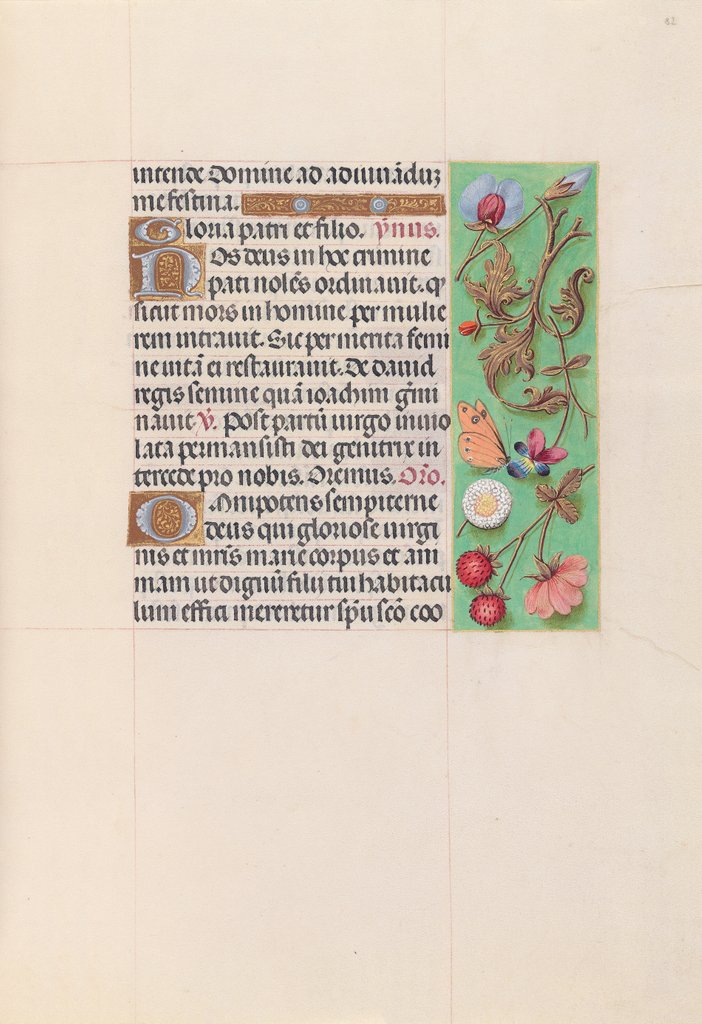 82
intende Domine ad adiuuādūz
me festina.
Gloria patri et filio. ỹnus.
Nos deus in hoc crimine
pati nolēs ordinauit. q̄
sicut mors in homine per mulie
rem intrauit. Sic per merita femi
ne uitā ei restaurauit. De dauid
regis semine quā ioachim ḡmi
nauit V̄. Post partū uirgo inuio
lata permansisti dei genitrix in
tercede pro nobis. Oremus. Or̄o.
Omnipotens sempiterne
deus qui gloriose uirgi
nis et mr̄is marie corpus et ani
mam ut dignū filij tui habitacu
lum effici mereretur sp̄u sc̄o coo